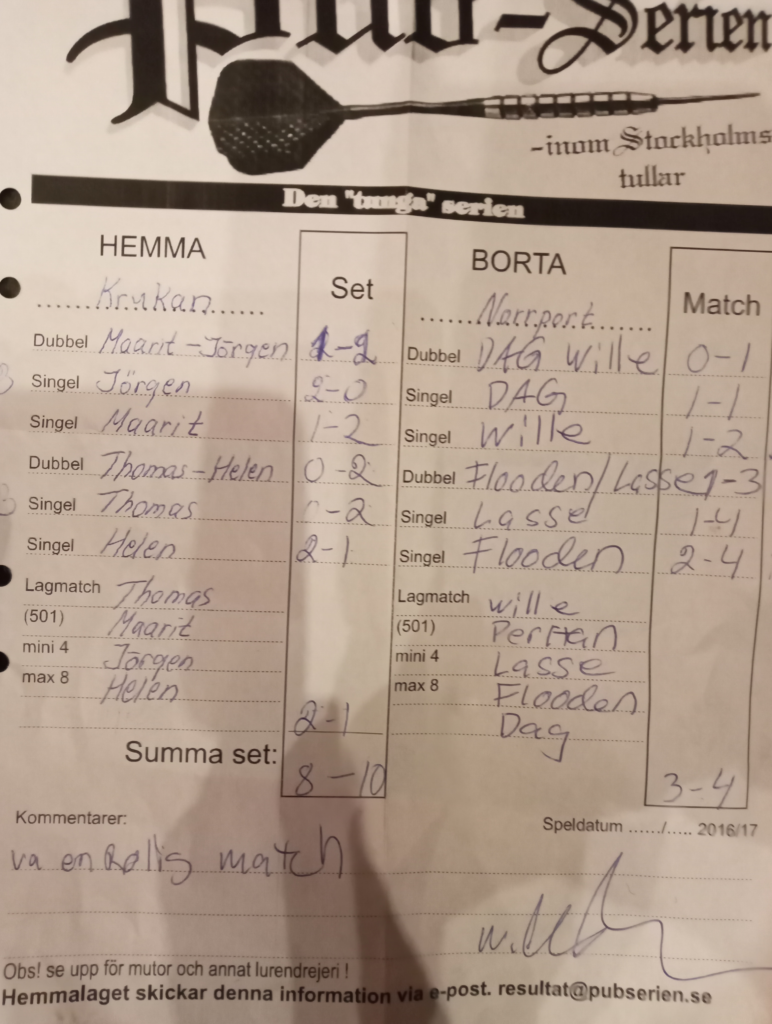 Pub-Serien
-inom Stockholms
tullar
Den "tunga" serien
HEMMA Set BORTA Match
......Krukan...... ......Narrport.......
Dubbel Maarit-Jörgen 1-2 Dubbel DAG Wille 0-1
Singel Jörgen 2-0 Singel DAG 1-1
Singel Maarit 1-2 Singel Wille 1-2
Dubbel Thomas-Helen 0-2 Dubbel Flooden/Lasse 1-3
Singel Thomas 0-2 Singel Lasse 1-4
Singel Helen 2-1 Singel Flooden 2-4
Lagmatch Thomas Lagmatch wille
(501) Maarit (501)
mini 4 Jörgen mini 4 Lasse
max 8 Helen max 8 Flooden
2-1 Dag
Summa set: 8-10 3-4
Kommentarer: Speldatum ....../..... 2016/17
va en match
Obs! se upp för mutor och annat lurendrejeri !
Hemmalaget skickar denna information via e-post. resultat@pubserien.se